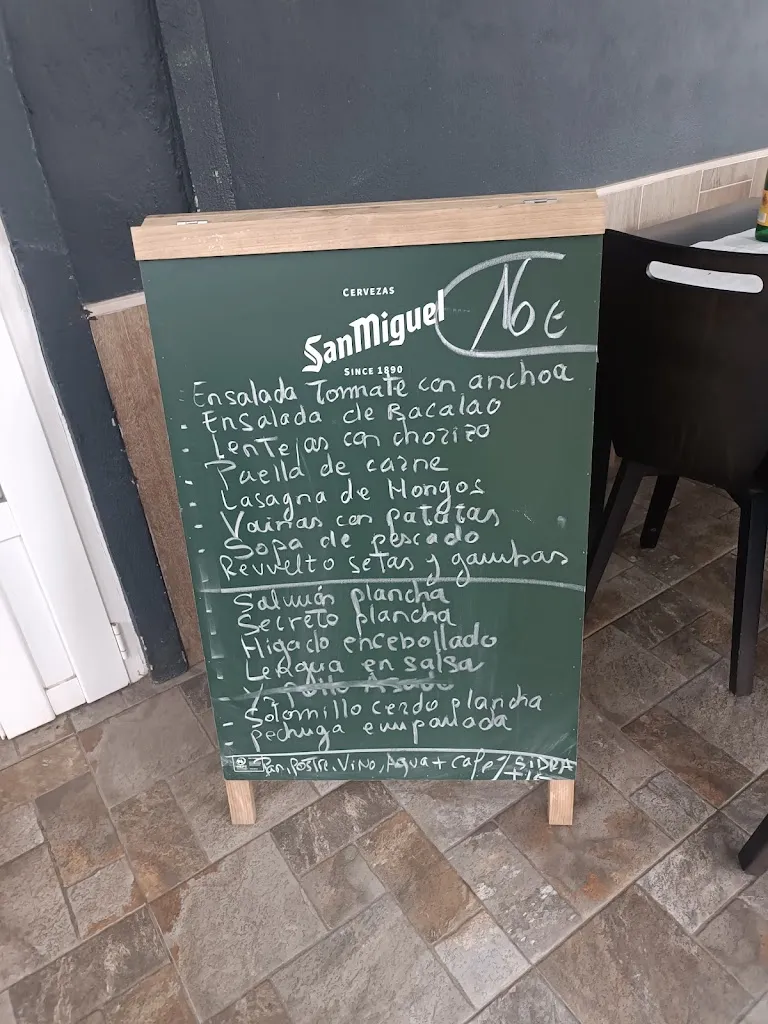 CERVEZAS
San Miguel
SINCE 1890
16 €
Ensalada Tommate con anchoa
- Ensalada de Bacalao
- Lentejas con chorizo
- Paella de carne
- Lasagna de Hongos
- Vainas con patatas
- Sopa de pescado
- Revuelto setas y gambas
Salmón plancha
Secreto plancha
Higado encebollado
Lengua en salsa
Pollo Asado
- Solomillo cerdo plancha
- Pechuga empanada
Pan, Postre, Vino, Agua + Cafe / SIDRA